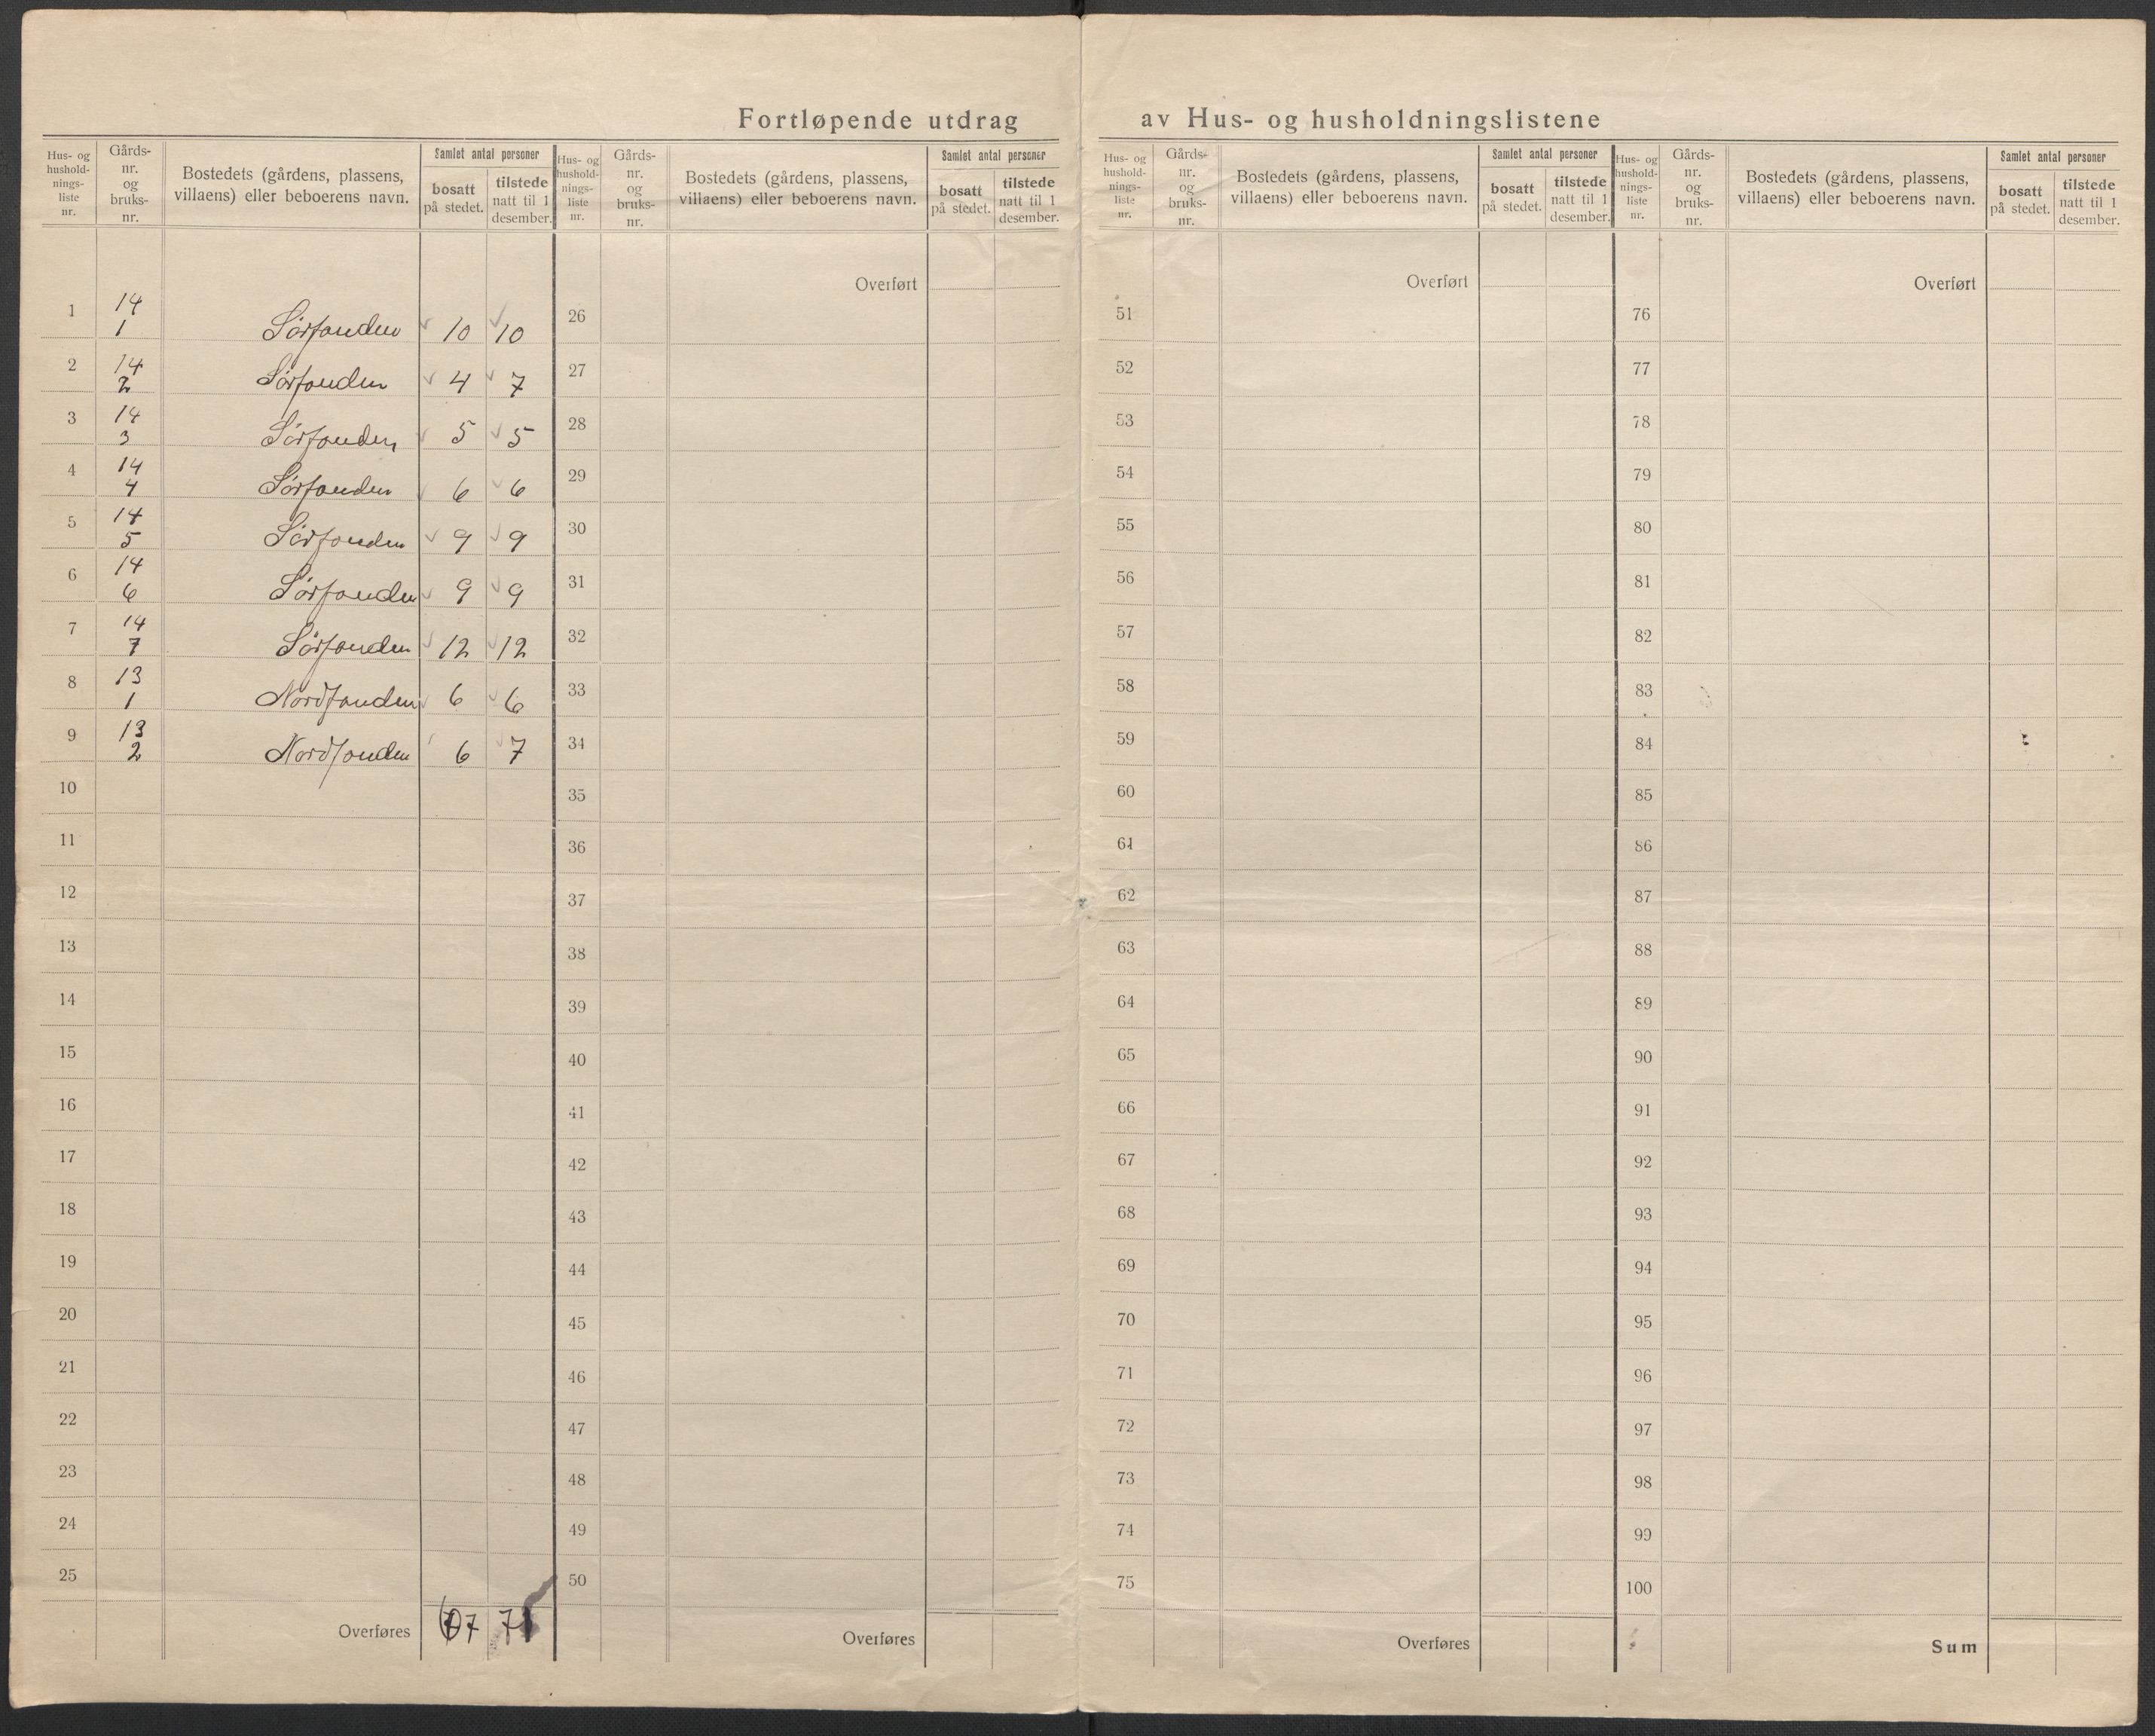 Fortløpende utdrag av Hus- og husholdningslistene
Hus- og hushold-nings-liste nr. Gårds-nr. og bruks-nr. Bostedets (gårdens, plassens, villaens) eller beboerens navn. Samlet antal personer bosatt på stedet. tilstede natt til 1 desember.
1 14 1 Sørfonden 10 10
2 14 2 Sørfonden 4 7
3 14 3 Sørfonden 5 5
4 14 4 Sørfonden 6 6
5 14 5 Sørfonden 9 9
6 14 6 Sørfonden 9 9
7 14 7 Sørfonden 12 12
8 13 1 Nordfonden 6 6
9 13 2 Nordfonden 6 7
10
11
12
13
14
15
16
17
18
19
20
21
22
23
24
25
Overføres 67 71
Hus- og hushold-nings-liste nr. Gårds-nr. og bruks-nr. Bostedets (gårdens, plassens, villaens) eller beboerens navn. Samlet antal personer bosatt på stedet. tilstede natt til 1 desember.
Overført
26
27
28
29
30
31
32
33
34
35
36
37
38
39
40
41
42
43
44
45
46
47
48
49
50
Overføres
Hus- og hushold-nings-liste nr. Gårds-nr. og bruks-nr. Bostedets (gårdens, plassens, villaens) eller beboerens navn. Samlet antal personer bosatt på stedet. tilstede natt til 1 desember.
Overført
51
52
53
54
55
56
57
58
59
60
61
62
63
64
65
66
67
68
69
70
71
72
73
74
75
Overføres
Hus- og hushold-nings-liste nr. Gårds-nr. og bruks-nr. Bostedets (gårdens, plassens, villaens) eller beboerens navn. Samlet antal personer bosatt på stedet. tilstede natt til 1 desember.
Overført
76
77
78
79
80
81
82
83
84
85
86
87
88
89
90
91
92
93
94
95
96
97
98
99
100
Sum